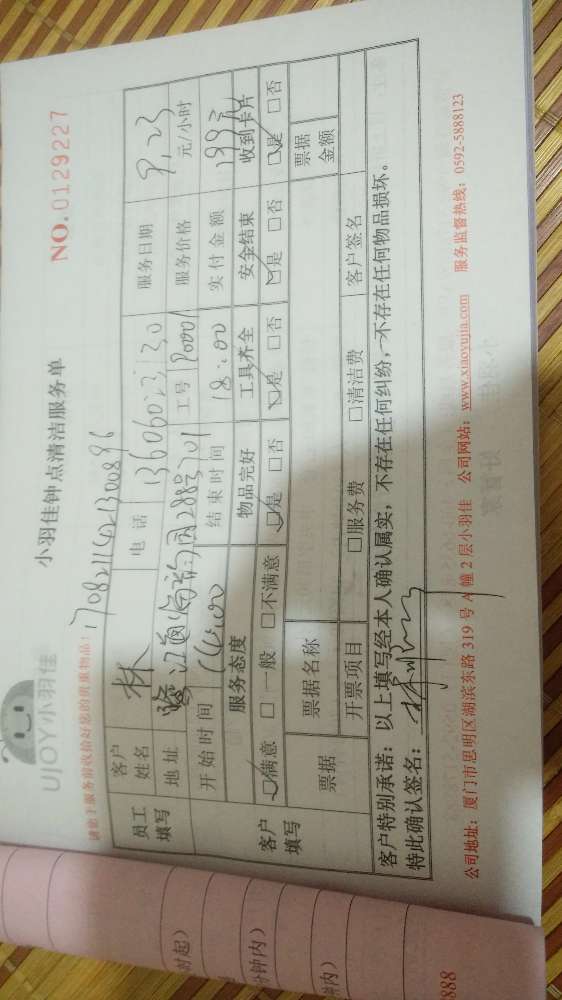 UJOY小羽佳
小羽佳钟点清洁服务单
NO.0129227
请您于服务前收拾好您的贵重物品！
员工填写
客户姓名 林 电话 服务日期 9.23
地址 工号 服务价格 元/小时
开始时间 14:00 结束时间 18:00 实付金额
客户填写
服务态度 物品完好 工具齐全 安全结束 收到卡片
☑满意 □一般 □不满意 ☑是 □否 ☑是 □否 ☑是 □否 ☑是 □否
票据 票据名称 票据金额
开票项目 □服务费 □清洁费 客户签名
客户特别承诺：以上填写经本人确认属实，不存在任何纠纷，不存在任何物品损坏。
特此确认签名：
公司地址：厦门市思明区湖滨东路 319 号 A 幢 2 层小羽佳 公司网站：www.xiaoyujia.com 服务监督热线：0592-5888123
时起）
分钟内）
钟内）
888